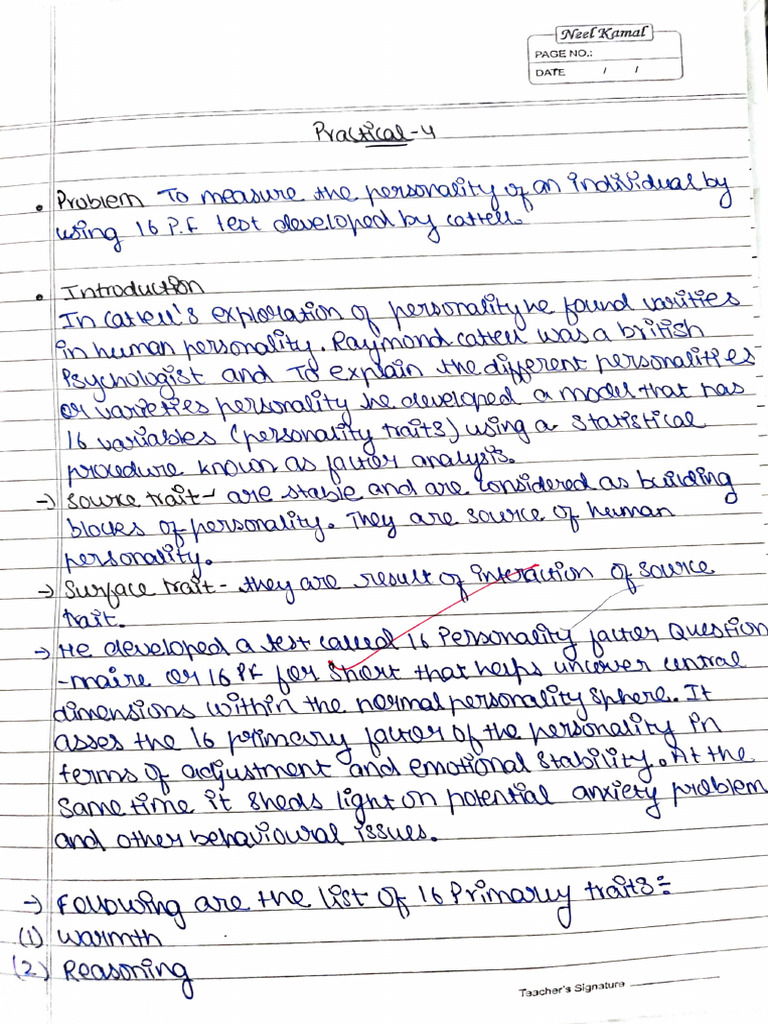 Neel Kamal
PAGE NO.:
DATE / /
Practical-4
• Problem To measure the personality of an individual by
using 16 P.F test developed by cattell.
• Introduction
In Cattell's exploration of personality he found varities
in human personality. Raymond cattell was a british
Psychologist and To explain the different personalities
or varieties personality he developed a model that has
16 variables (personality traits) using a statistical
procedure known as factor analysis.
→ Source trait - are stable and are considered as building
blocks of personality. They are source of human
personality.
→ Surface trait - they are result of interaction of source
trait.
→ He developed a test called 16 Personality factor Question
-naire or 16 PF for short that helps uncover central
dimensions within the normal personality sphere. It
asses the 16 primary factor of the personality in
terms of adjustment and emotional stability. At the
same time it sheds light on potential anxiety problem
and other behavioural issues.
→ Following are the list of 16 Primary traits:-
(1) Warmth
(2) Reasoning
Teacher's Signature